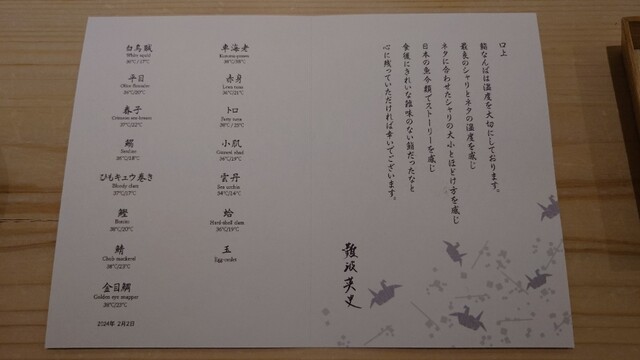 白烏賊
White squid
36℃/17℃
平目
Olive flounder
春子
Crimson sea bream
37℃/22℃
Sardine
36℃/18℃
ひもキュウ巻き
Bloody clam
37℃/17℃
鰹
Bonito
38℃/20℃
鯖
Chub mackerel
38℃/23℃
金目鯛
Golden eye snapper
38℃/23℃
2024年 2月2日
車海老
Kuruma prawn
38℃/38℃
赤身
Lean tuna
36℃/21℃
トロ
Fatty tuna
小肌
Gizzard shad
36℃/19℃
雲丹
Sea urchin
34℃/14℃
蛤
Hard-shell clam
36℃/19℃
玉
Egg omlet
口上
鮨なんばは温度を大切にしております。
最良のシャリとネタの温度を感じ
ネタに合わせたシャリの大小とほどけ方を感じ
日本の魚介類でストーリーを感じ
食後にきれいな雑味のない鮨だったなと
心に残っていただければ幸いでございます。
難波英史